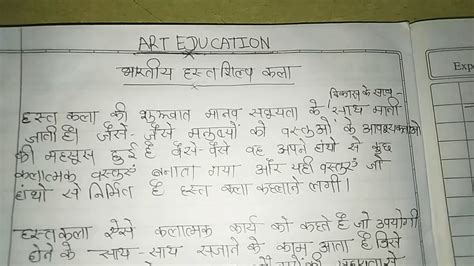 ART EDUCATION
भारतीय हस्त शिल्प कला
विकास के साथ -
हस्त कला की शुरुवात मानव सभ्यता के साथ मानी
जाती है। जैसे- जैसे मनुष्यों को वस्तुओं के आवश्यकताओं
की महसूस हुई है वैसे-वैसे वह अपने हाथों से कुछ
कलात्मक वस्तुएं बनाता गया और यही वस्तुएं जो
हाथो से निर्मित है हस्त कला कहलाने लगी।
हस्तकला ऐसे कलात्मक कार्य को कहते है जो उपयोगी
होने के साथ-साथ सजाने के काम आता है जिसे
Exp